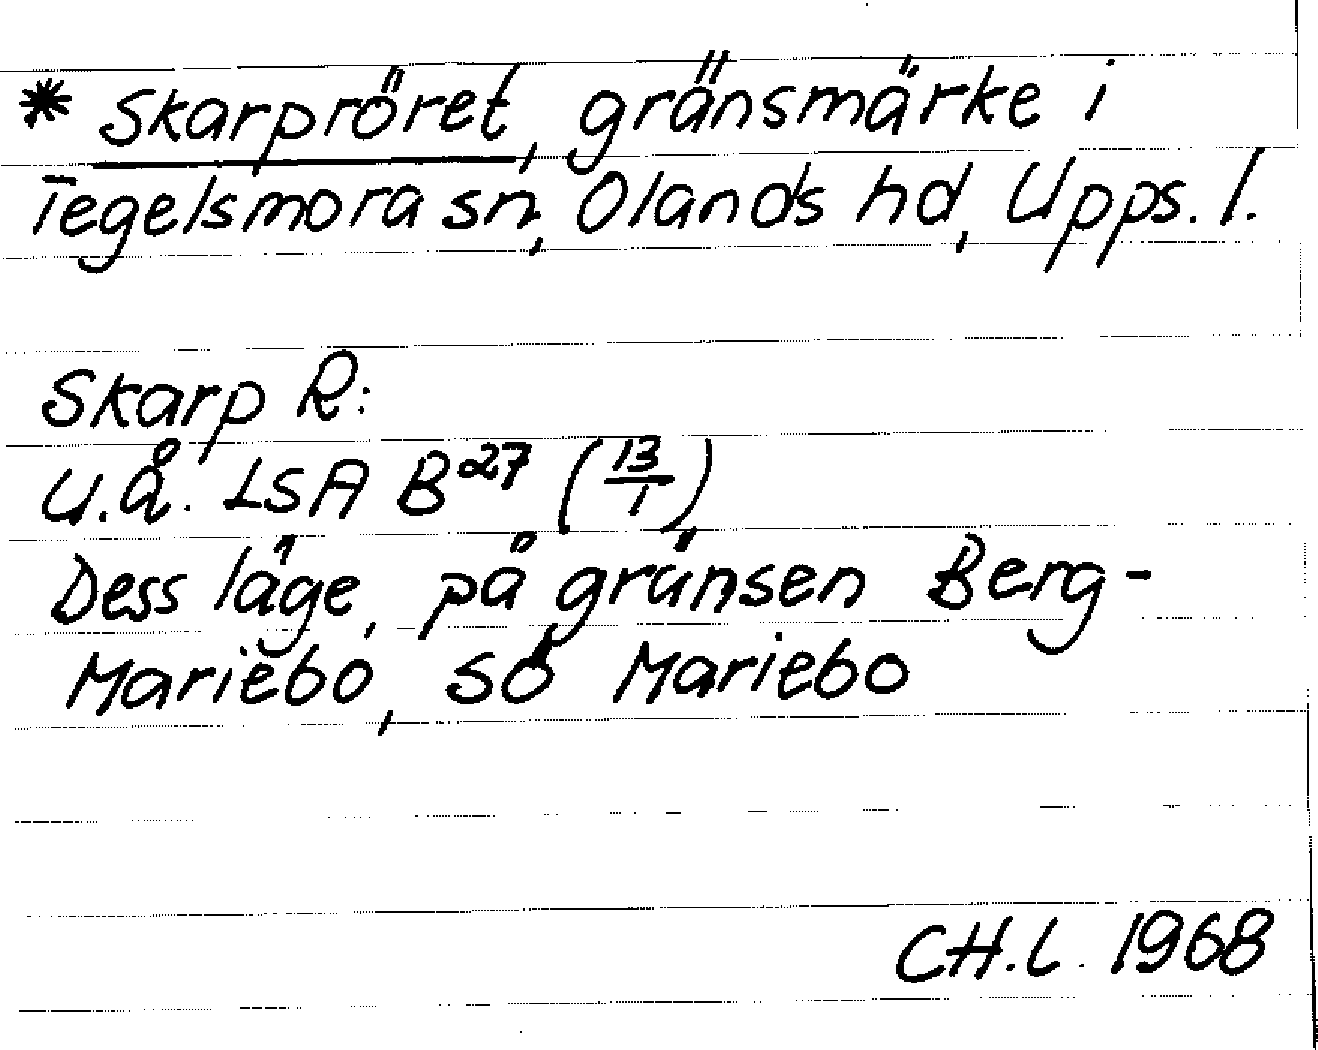 * Skarpröret, gränsmärke i
Tegelsmora sn, Olands hd, Upps. l.
Skarp R:
U.Å. LSA B27 (13/1)
Dess läge, på gränsen Berg-
Mariebo, SÖ Mariebo
CH.L. 1968